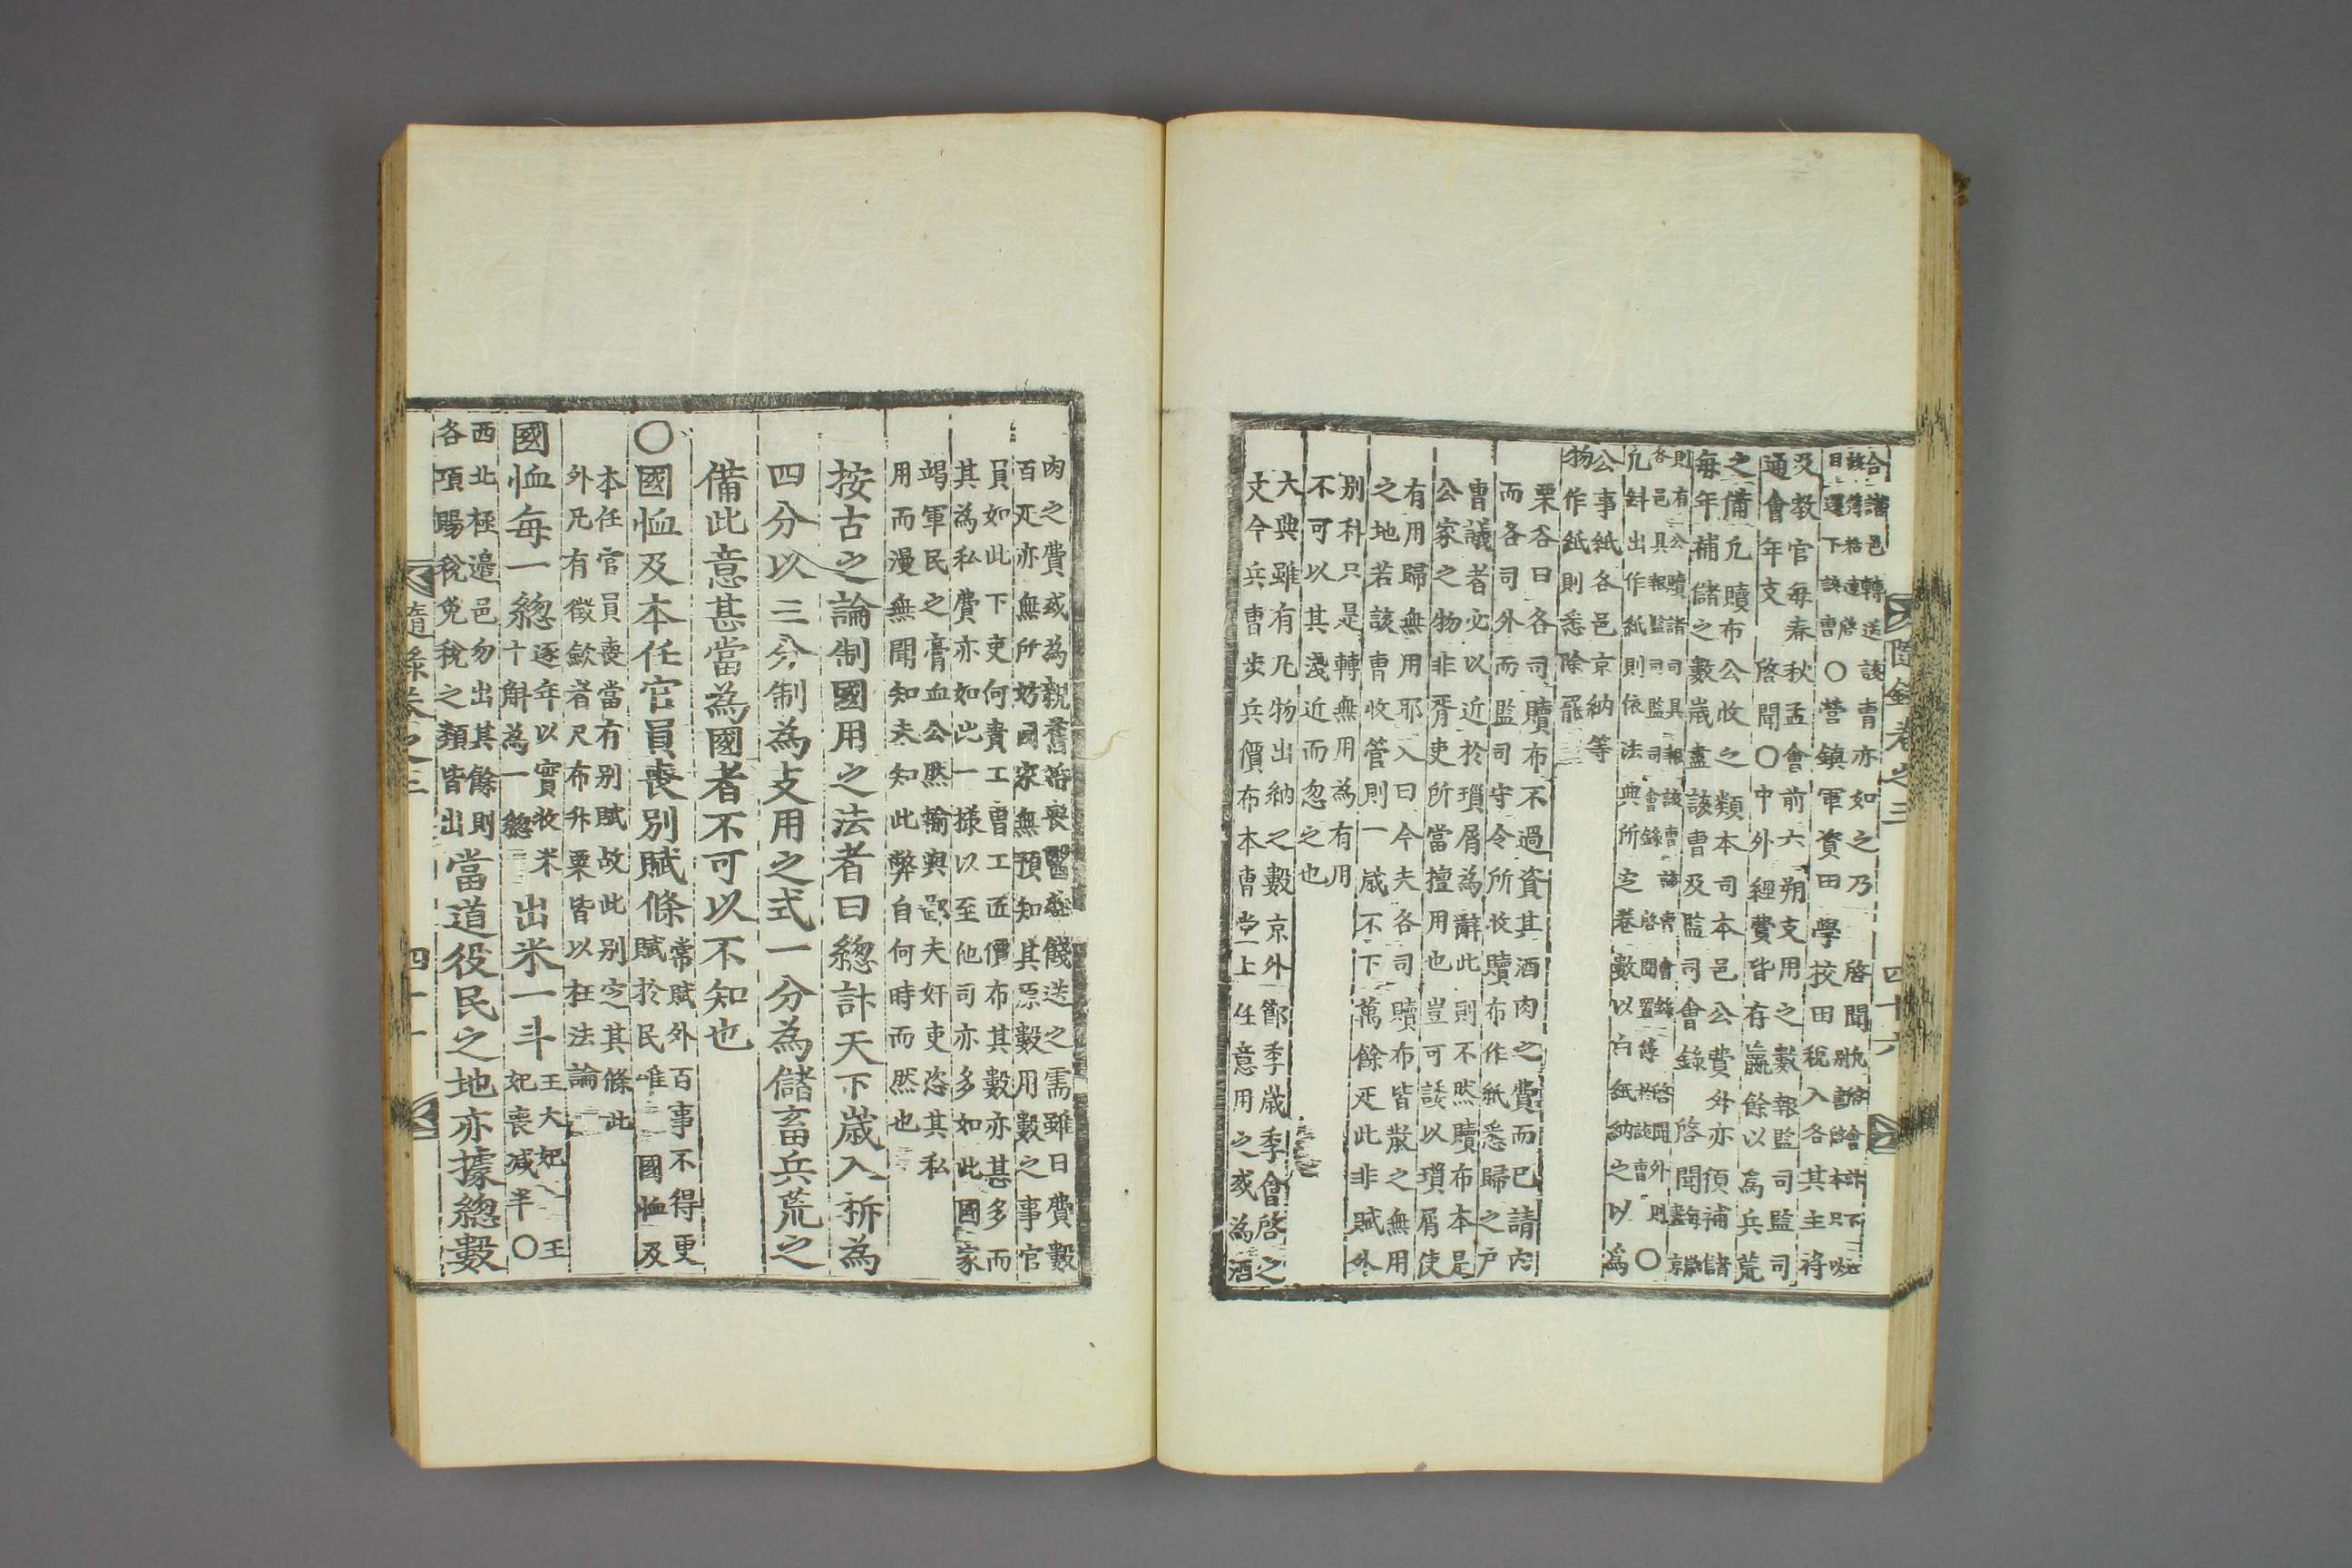 合諸邑轉送該曹亦如之乃 啓聞
目還下該曹○營鎭軍資田學校田稅入各其主將
及教官每春秋孟會前六朔支用之數報監司監司
通會年支 啓聞○中外經費皆存贏餘以爲兵荒
之備凡贖布公收之類本司本邑公費外亦預補儲
每年補儲之數歲盡該曹及監司會錄 啓聞
則有公贖諸司具報該曹該曹會錄啓聞外則
各邑具報監司監司會錄 啓聞置簿於該曹○
凡卦出作紙則依法典所定卷數以白紙納之以爲
公事紙各邑京納等
物作紙則悉除罷
栗谷曰各司贖布不過資其酒肉之費而已請內
而各司外而監司守令所收贖布作紙悉歸之戶
曹議者必以近於瑣屑爲辭此則不然贖布本是
公家之物非胥吏所當擅用也豈可諉以瑣屑使
有用歸無用耶入曰今夫各司贖布皆散之無用
之地若該曹收管則一歲不下萬餘疋此非賦外
別科只是轉無用爲有用
不可以其淺近而忽之也
大典雖有凡物出納之數京外節季歲季會啓之
文今兵曹步兵價布本曹堂上任意用之或為酒
隨錄卷之三 四十六
肉之費或為親舊婚喪醫藥餞送之需雖日費數
百疋亦無所妨國家無預知其原數用數之事官
員如此下吏何責工曹工匠價布其數亦甚多而
其為私費亦如此一樣以至他司亦多如此國家
竭軍民之膏血公然輸與鄙夫奸吏恣其私
用而漫無聞知夫知此弊自何時而然也
按古之論制國用之法者曰緫計天下歲入析為
四分以三分制為支用之式一分為儲畜兵荒之
備此意甚當為國者不可以不知也
○國恤及本任官員喪別賦條常賦外百事不得更
賦於民唯國恤及
本任官員喪當有別賦故此別定其條此
外凡有徵歛者尺布升粟皆以枉法論
國恤每一緫逐年以實收米
十斛為一緫出米一斗王大妃王
妃喪减半○
西北極邉邑勿出其餘則
各項賜稅免稅之類皆出當道役民之地亦據緫數
隨錄卷之三